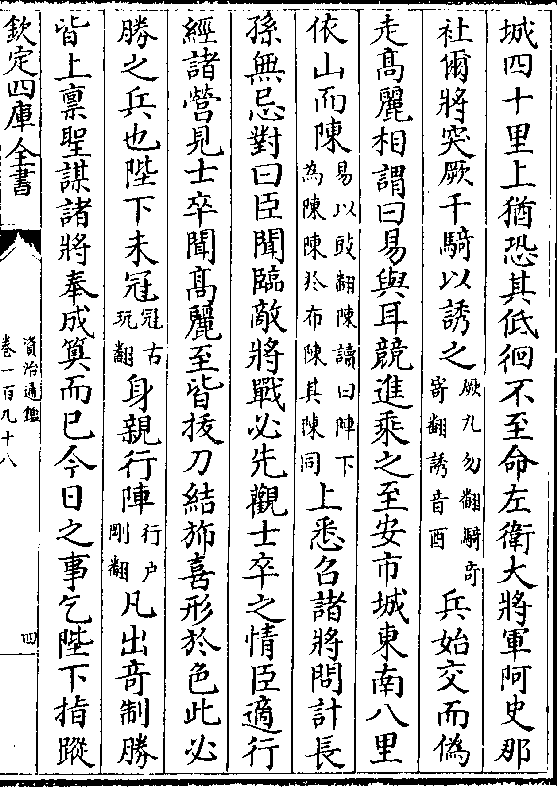 城四十里上猶恐其低徊不至命左衛大將軍阿史那
社爾將突厥千騎以誘之厥九勿翻騎奇寄翻誘音酉兵始交而偽
走高麗相謂曰易與耳競進乘之至安市城東南八里
依山而陳易以䜴翻陳讀曰陣下為陳陳於布陳其陳同上悉召諸將問計長
孫無忌對曰臣聞臨敵將戰必先觀士卒之情臣適行
經諸營見士卒聞高麗至皆拔刀結斾喜形於色此必
勝之兵也陛下未冠冠古玩翻身親行陣行户剛翻凡出奇制勝
皆上禀聖謀諸將奉成算而已今日之事乞陛下指蹤
欽定四庫全書
資治通鑑
卷一百九十八
四